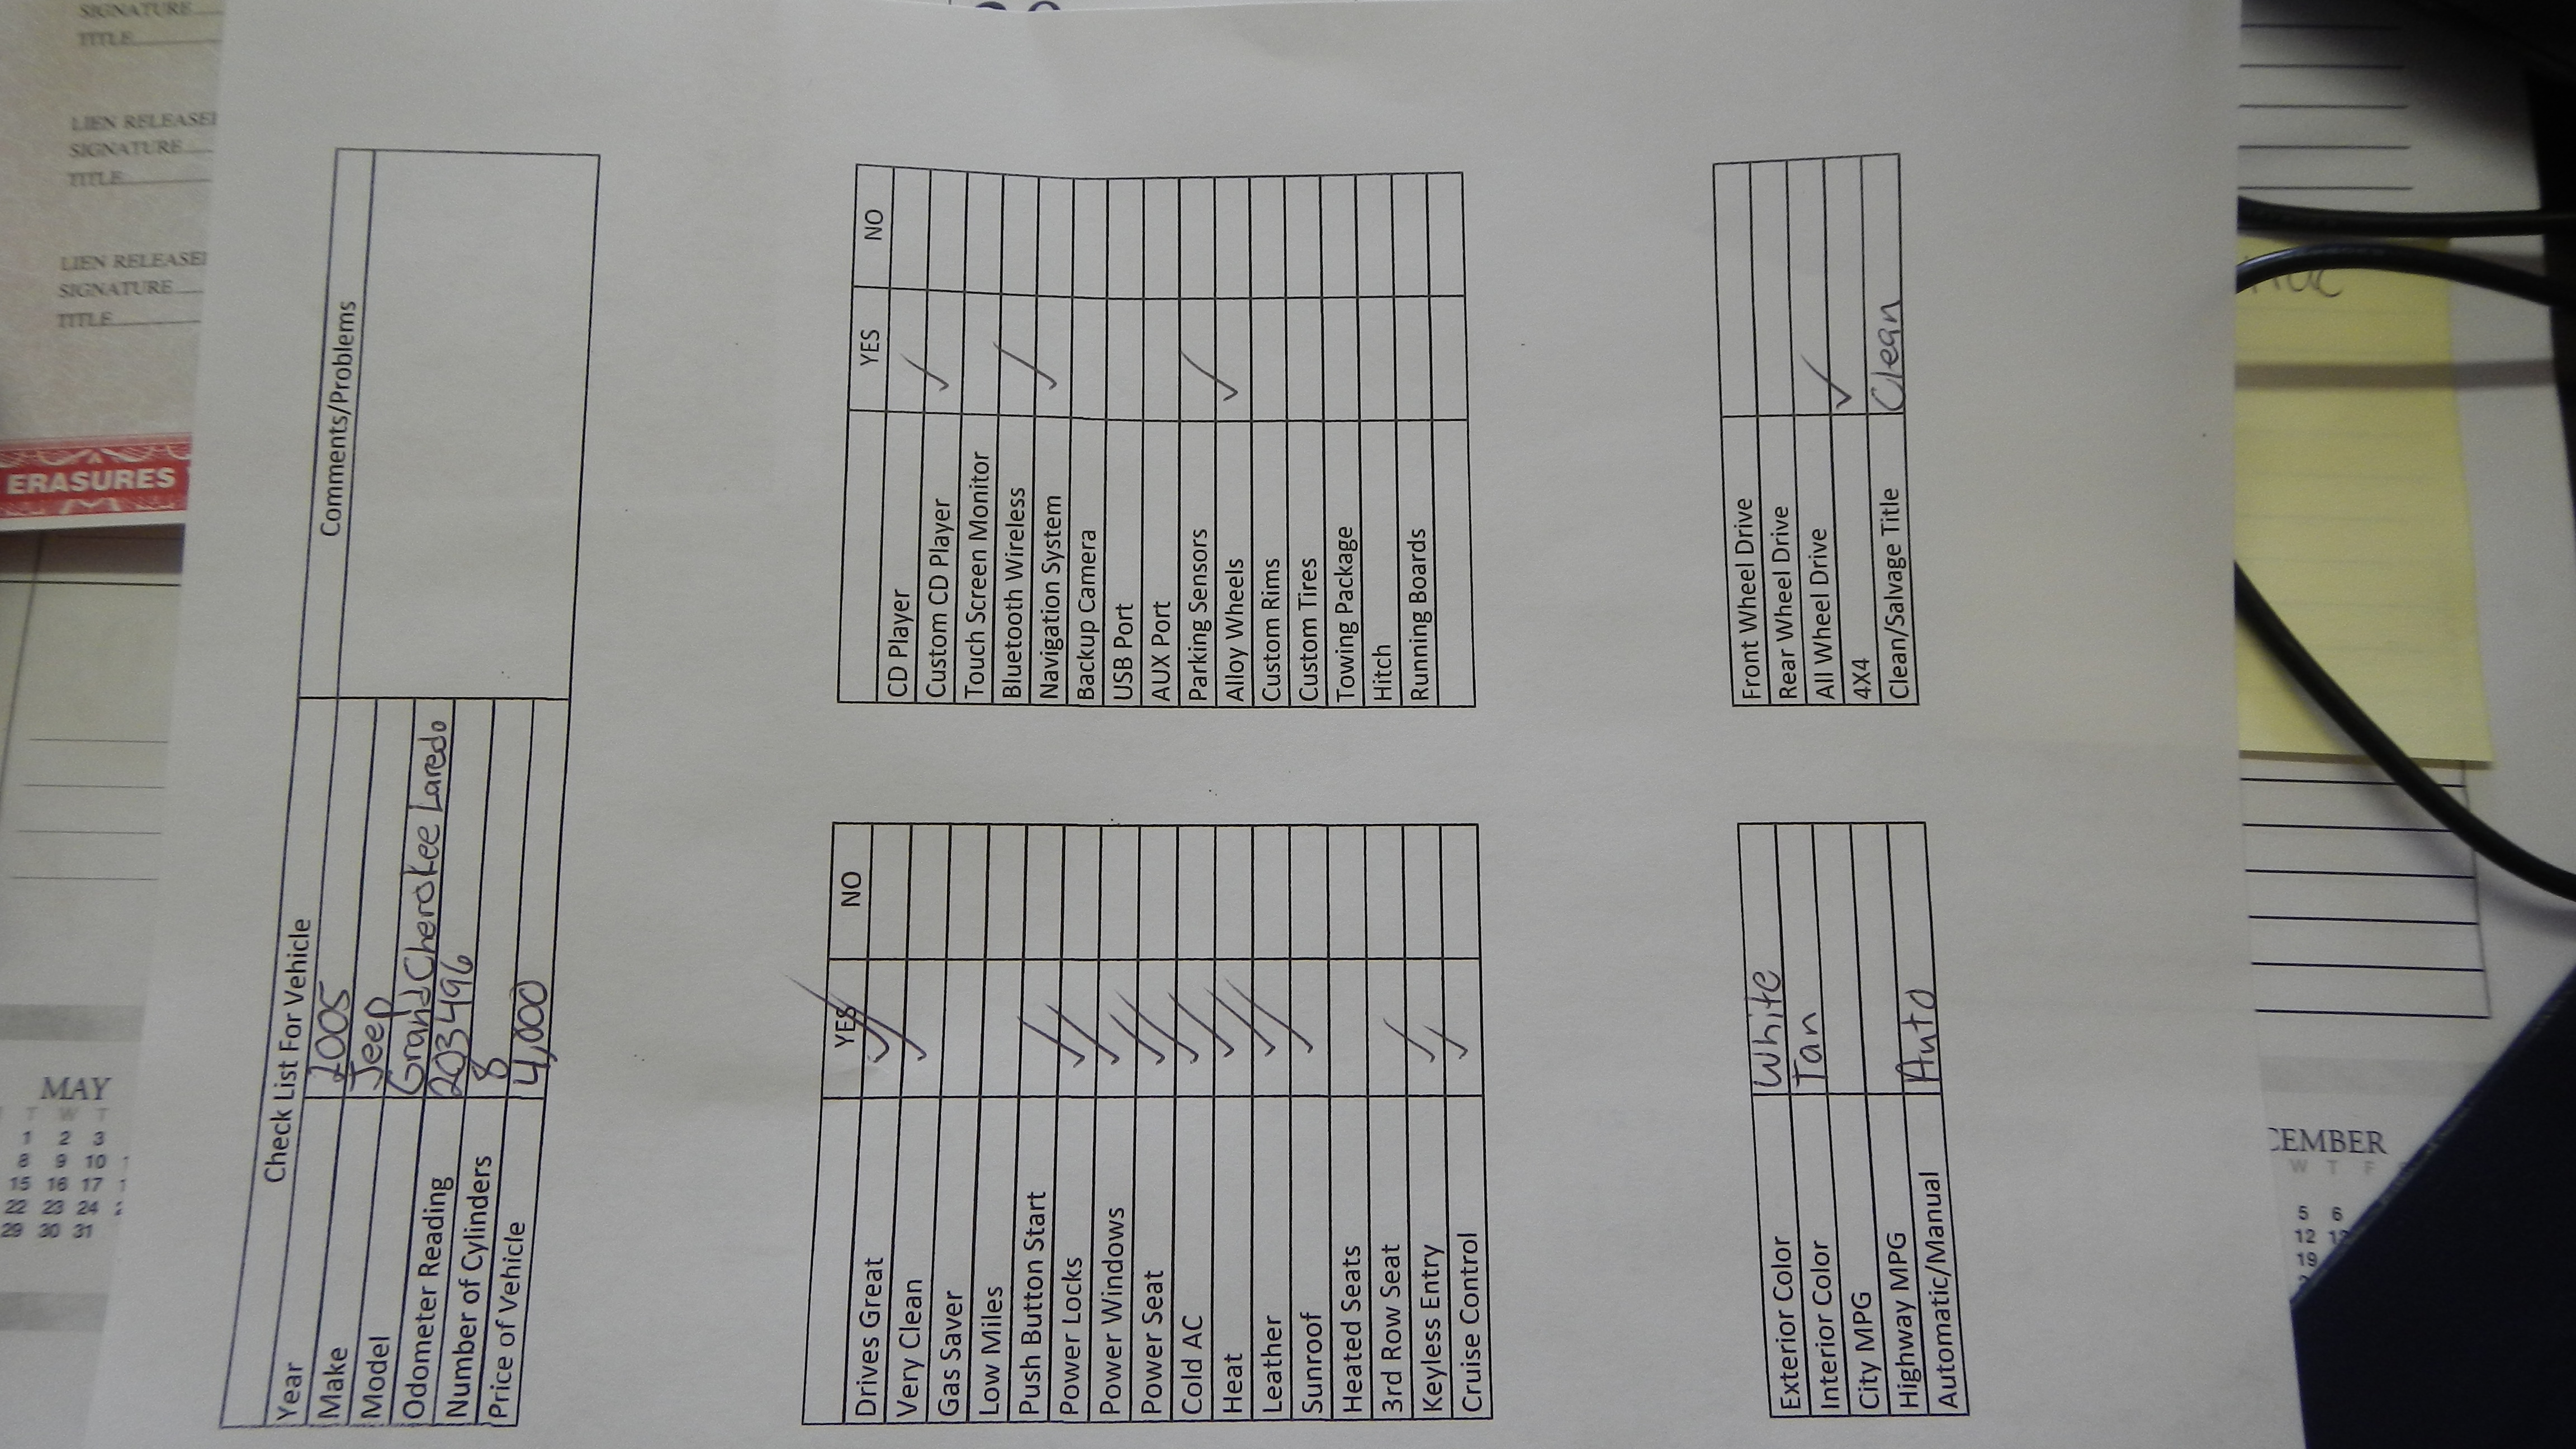 MAY
T W T
1 2 3
8 9 10
15 16 17
22 23 24
29 30 31
ERASURES
LIEN RELEASE
SIGNATURE
TITLE
LIEN RELEASE
SIGNATURE
TITLE
SIGNATURE
TITLE
Check List For Vehicle
Comments/Problems
Year 2005
Make Jeep
Model Grand Cherokee Laredo
Odometer Reading 203496
Number of Cylinders 8
Price of Vehicle 4,000
YES NO
Drives Great ✓
Very Clean ✓
Gas Saver
Low Miles
Push Button Start
Power Locks ✓
Power Windows ✓
Power Seat ✓
Cold AC ✓
Heat ✓
Leather ✓
Sunroof ✓
Heated Seats
3rd Row Seat
Keyless Entry ✓
Cruise Control ✓
YES NO
CD Player
Custom CD Player ✓
Touch Screen Monitor
Bluetooth Wireless
Navigation System ✓
Backup Camera
USB Port
AUX Port
Parking Sensors
Alloy Wheels ✓
Custom Rims
Custom Tires
Towing Package
Hitch
Running Boards
Exterior Color White
Interior Color Tan
City MPG
Highway MPG
Automatic/Manual Auto
Front Wheel Drive
Rear Wheel Drive
All Wheel Drive
4X4 ✓
Clean/Salvage Title Clean
CEMBER
W T F
5 6
12
19